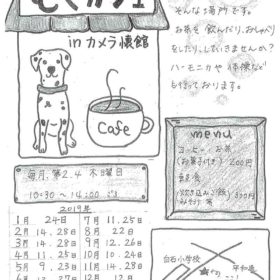 むくカフェ
in カメラ懐館
そんな場所です。
お茶を飲んだり、おしゃべり
をしたり、していきませんか？
ハーモニカや体操など
も行っております。
Cafe
毎月、第2.4 木曜日
10:30～14:00
menu
コーヒー・お茶
(お菓子付き) 200円
軽食
300円
2019年
1月 24日
7月 11.25日
2月 14.28日
8月 22日
3月 14.28日
9月 12.26日
4月 11.25日
10月 10.24日
5月 9.23日
11月 14.28日
白石小学校
平和通